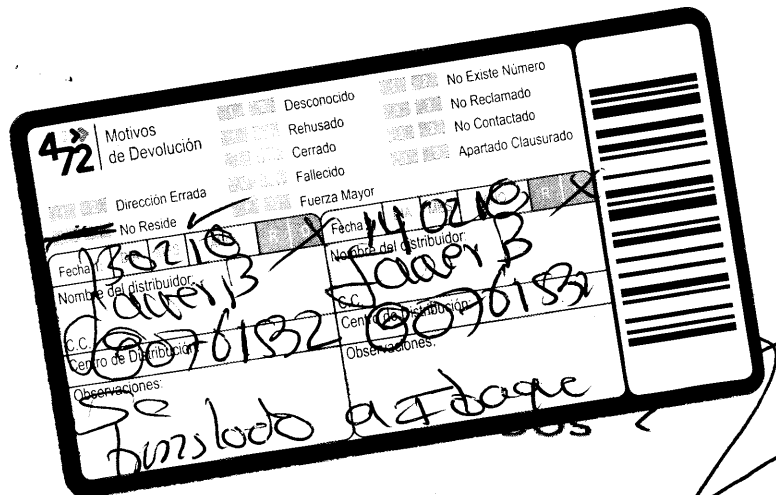 472 Motivos de Devolución
Desconocido
Rehusado
Cerrado
Fallecido
Fuerza Mayor
No Existe Número
No Reclamado
No Contactado
Apartado Clausurado
Dirección Errada
No Reside
Fecha 1: 130218
Nombre del distribuidor:
Javier B
C.C.
Centro de Distribución:
Observaciones:
Se
traslado a Ibague
Fecha 140218
Nombre del distribuidor:
Javier B
C.C.
Centro de Distribución:
Observaciones: